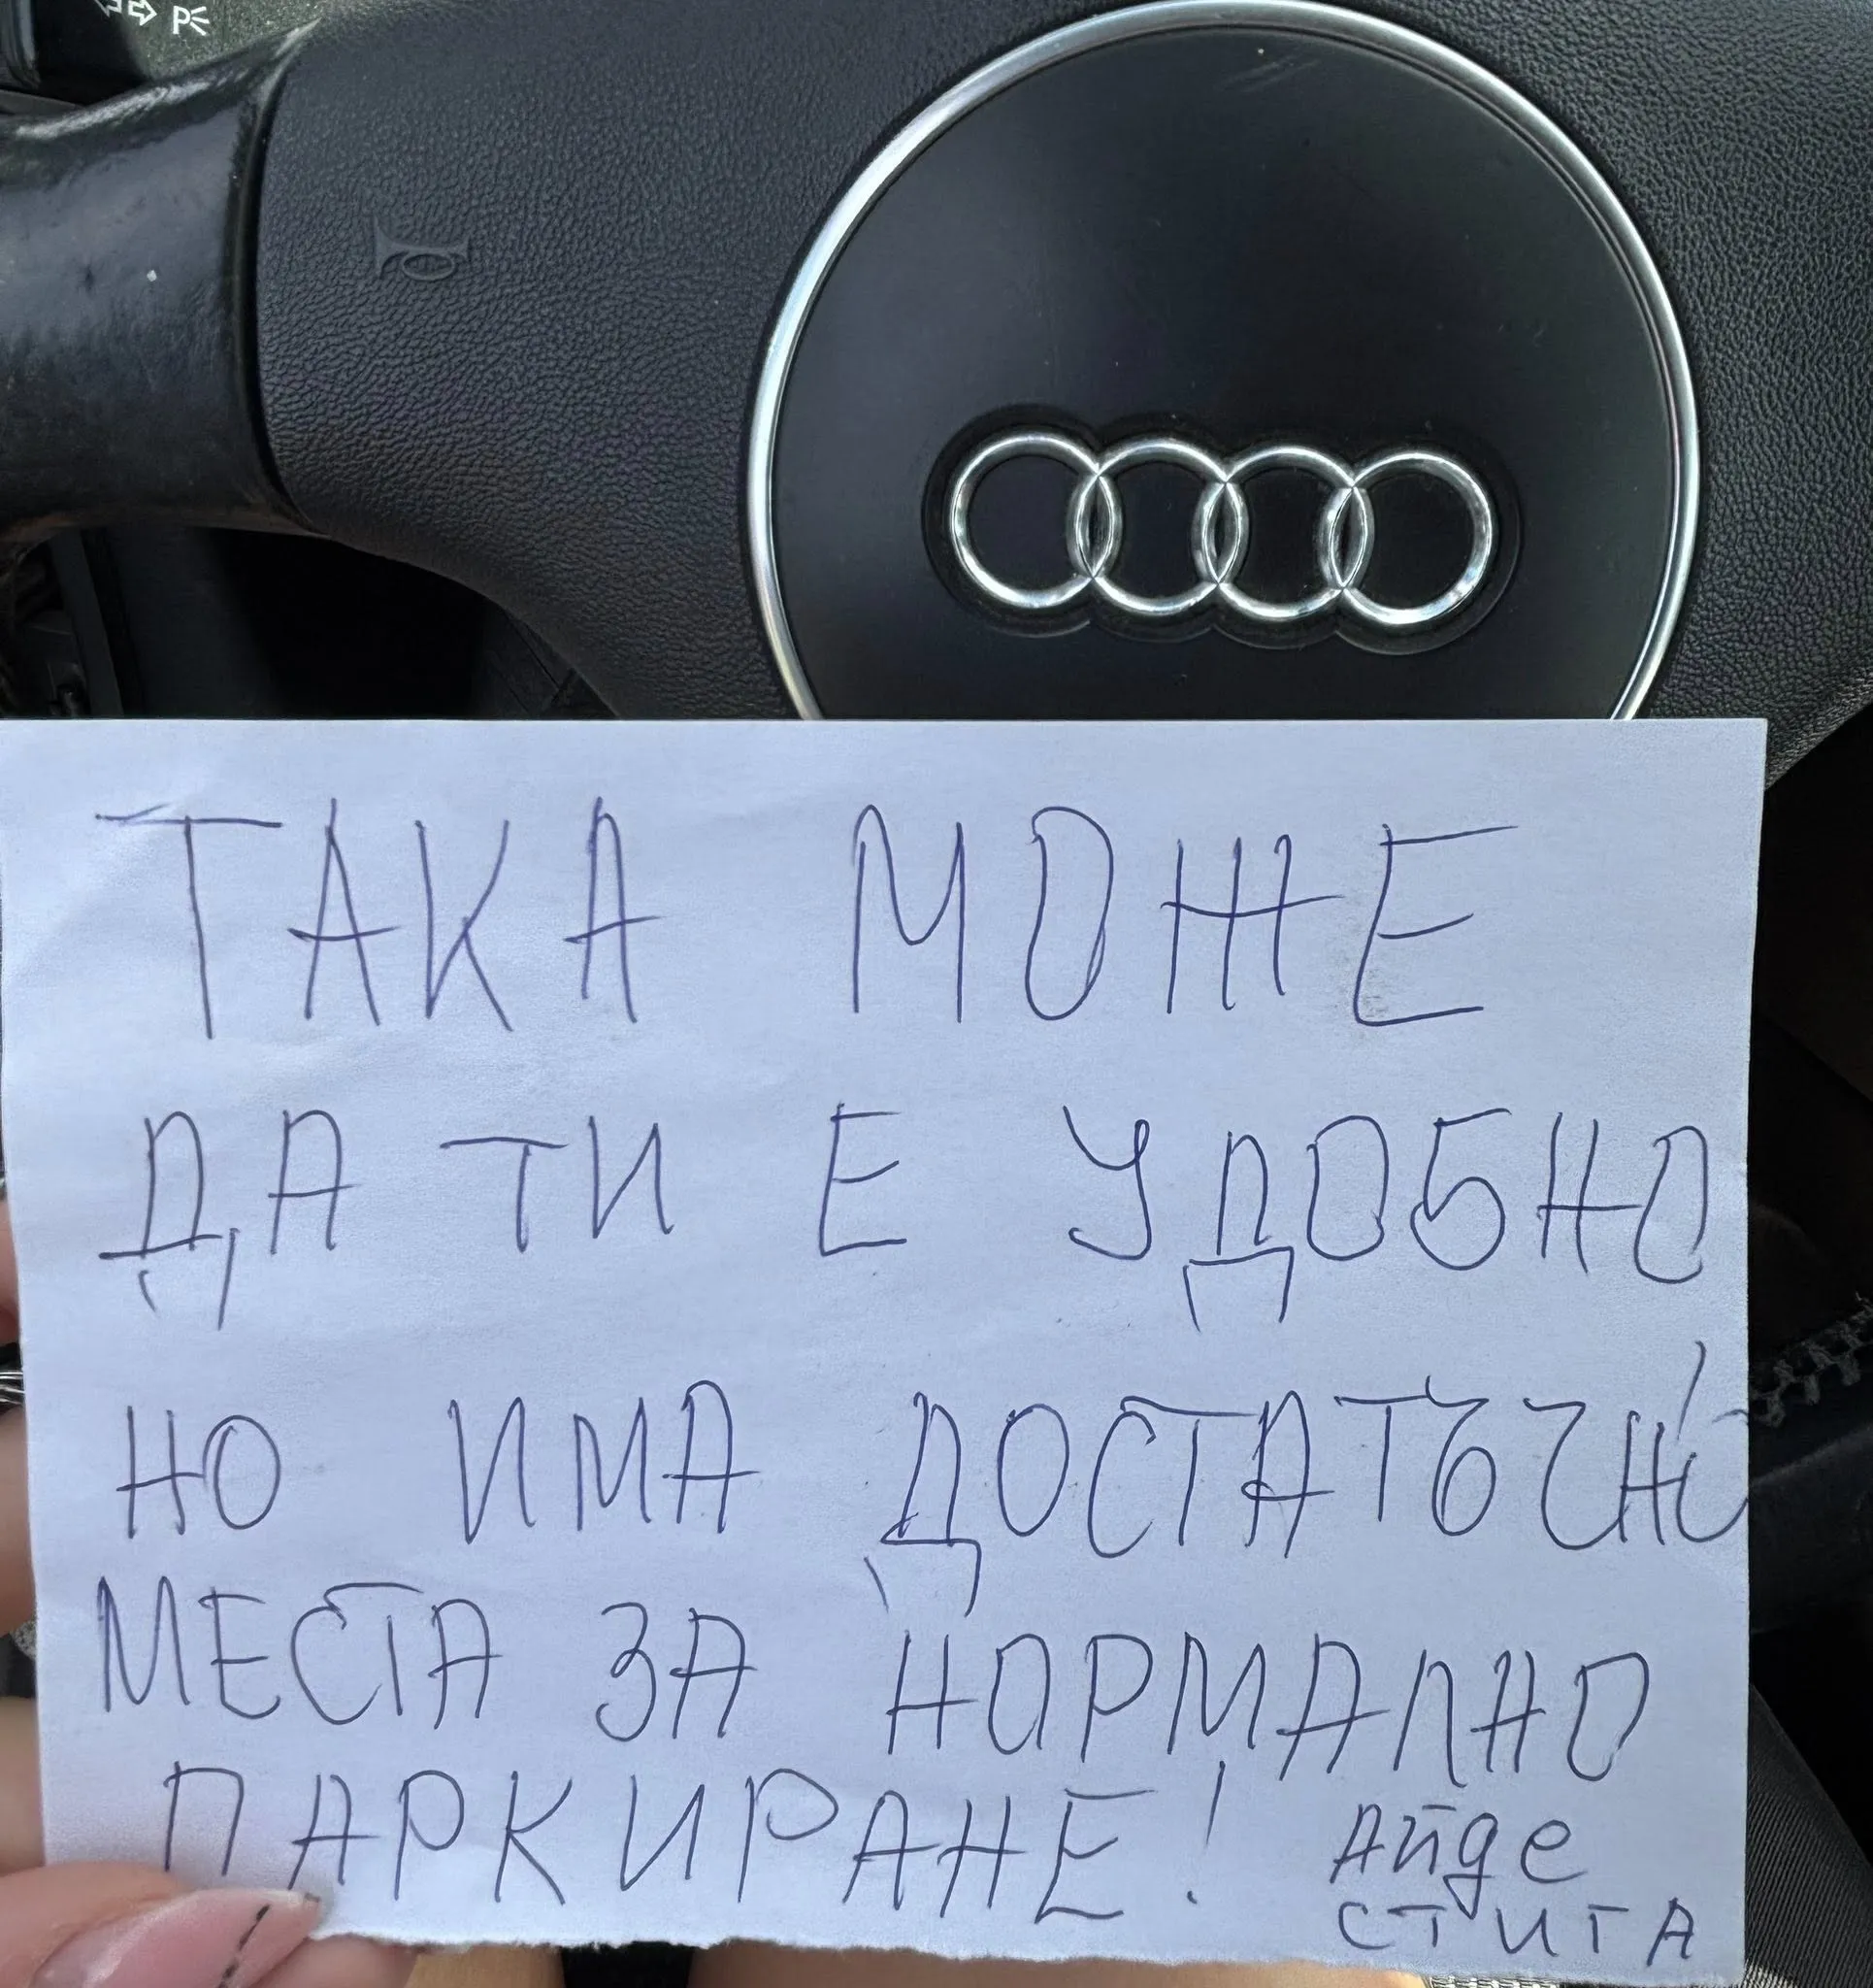 P
ТАКА МОЖЕ
ДА ТИ Е УДОБНО
НО ИМА ДОСТАТЪЧНО
МЕСТА ЗА НОРМАЛНО
ПАРКИРАНЕ!
Айде
стига